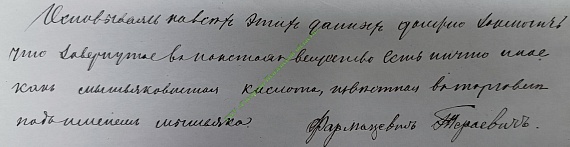 Основываясь на всѣхъ этихъ данныхъ должно заключить
что завернутое въ пакетахъ вещество есть ничто иное
какъ мышьяковистая кислота, извѣстная въ торговлѣ
подъ именемъ мышьяка. Фармацевтъ